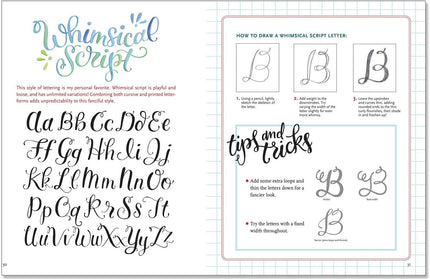 Whimsical
Script
This style of lettering is my personal favorite. Whimsical script is playful and
loose, and has unlimited variations! Combining both cursive and printed letter-
forms adds unpredictability to this fanciful style.
Aa Bb Cc Dd Ee
Ff Gg Hh Ii Jj
Kk Ll Mm Nn Oo
Pp Qq Rr Ss Tt
Uu Vv Ww Xx Yy Zz
30
HOW TO DRAW A WHIMSICAL SCRIPT LETTER:
B B B
1. Using a pencil, lightly
sketch the skeleton of
the letter.
2. Add weight to the
downstrokes. Try
varying the width of the
letter slightly for even
more whimsy.
3. Leave the upstrokes
and curves thin, adding
rounded ends to the first
curly flourishes, then shade
in and freshen up!
tips and
tricks
Add some extra loops and
thin the letters down for a
fancier look.
B B
Try the letters with a fixed
width throughout.
B
31